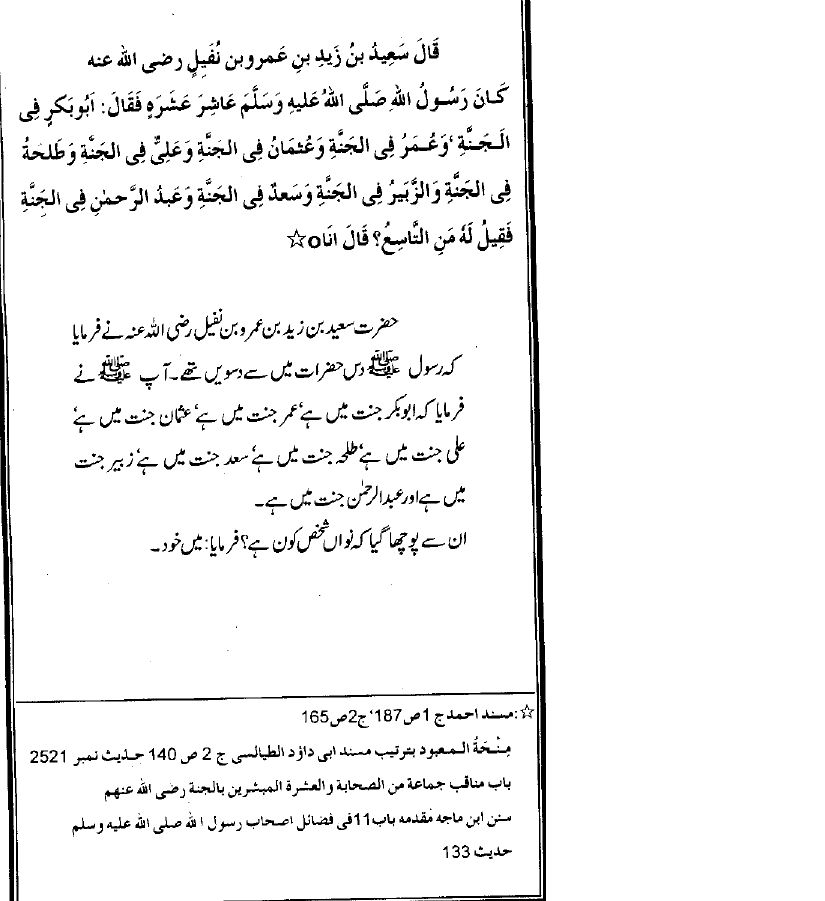 قَالَ سَعِيدُ بنُ زَيدِ بنِ عَمرو بن نُفَيلٍ رضى الله عنه
كَانَ رَسُولُ اللهِ صَلَّى اللهُ عَلَيهِ وَسَلَّمَ عَاشِرَ عَشَرَهٍ فَقَالَ: اَبُوبَكرٍ فِى
الجَنَّةِ ‘وَعُمَرُ فِى الجَنَّةِ وَعُثمَانُ فِى الجَنَّةِ وَعَلِىٌّ فِى الجَنَّةِ وَطَلحَةُ
فِى الجَنَّةِ وَالزُّبَيرُ فِى الجَنَّةِ وَسَعدٌ فِى الجَنَّةِ وَعَبدُ الرَّحمٰنِ فِى الجَنَّةِ
فَقِيلُ لَهٗ مَنِ التَّاسِعُ؟ قَالَ اَنَاo☆
حضرت سعید بن زید بن عمرو بن نفیل رضی اللہ عنہ نے فرمایا
کہ رسول ﷺ دس حضرات میں سے دسویں تھے۔ آپ ﷺ نے
فرمایا کہ ابوبکر جنت میں ہے‘ عمر جنت میں ہے‘ عثمان جنت میں ہے‘
علی جنت میں ہے‘ طلحہ جنت میں ہے‘ سعد جنت میں ہے‘ زبیر جنت
میں ہے اور عبدالرحمٰن جنت میں ہے۔
ان سے پوچھا گیا کہ نواں شخص کون ہے؟ فرمایا: میں خود۔
☆: مسند احمد ج 1 ص 187‘ ج2ص165
مِنْحَةُ المعبود بترتیب مسند ابی داؤد الطیالسی ج 2 ص 140 حدیث نمبر 2521
باب مناقب جماعة من الصحابة والعشرة المبشرین بالجنة رضی الله عنهم
سنن ابن ماجه مقدمه باب11فی فضائل اصحاب رسول الله صلی الله علیه وسلم
حدیث 133